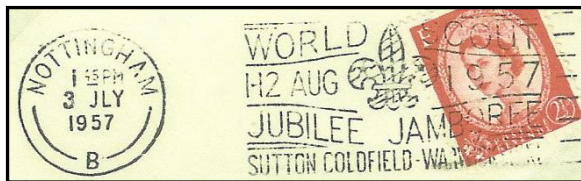 NOTTINGHAM
1 45 PM
3 JLY
1957
B
WORLD SCOUT
1-12 AUG 1957
JUBILEE JAMBOREE
SUTTON COLDFIELD-
2½